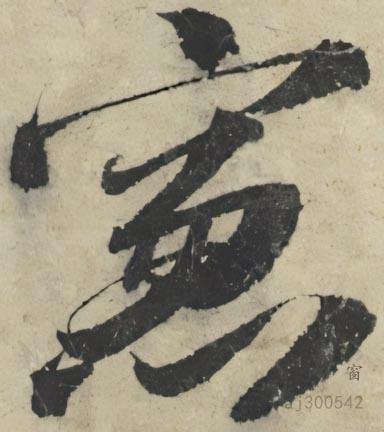 窗
窗
aj300542